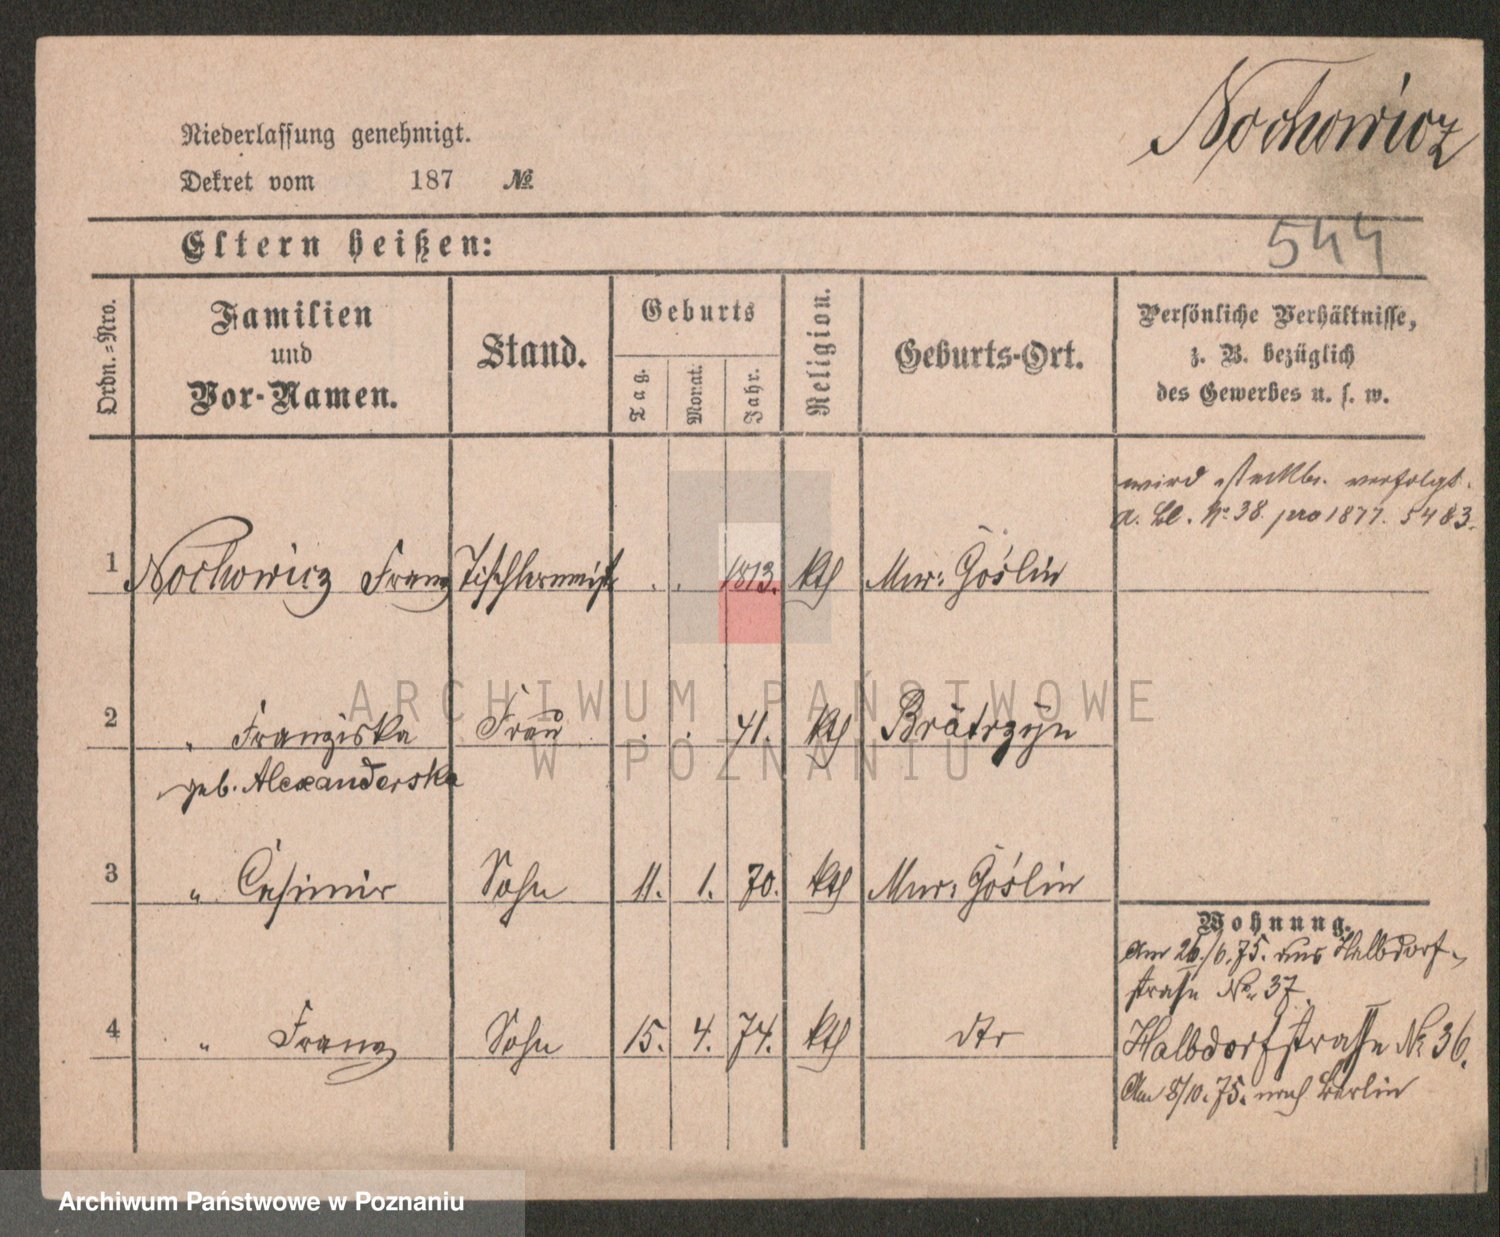 Nochowicz
Niederlassung genehmigt.
Dekret vom 187 №
544
Eltern heißen:
Ordn.=Nro. Familien und Vor-Namen. Stand. Geburts Tag. Monat. Jahr. Religion. Geburts-Ort. Persönliche Verhältnisse, z. B. bezüglich des Gewerbes u. s. w.
wird steckbr. verfolgt.
a. Bl. No 38. pro 1877. 5483.
1 Nochowicz Franz Tischlermeist . . 1813. kth Mur: Goslin
2 " Franziska Frau . . 41. kth
geb. Alexanderska
3 " Casimir Sohn 11. 1. 70. kth Mur: Goslin
Wohnung.
Am 26./6. 75. aus Halbdorf-
strasse No. 37.
4 " Franz Sohn 15. 4. 74. kth dto
Halbdorfstrasse No 36.
Am 8/10. 75. nach Berlin
ARCHIWUM PAŃSTWOWE
W POZNANIU
Archiwum Państwowe w Poznaniu